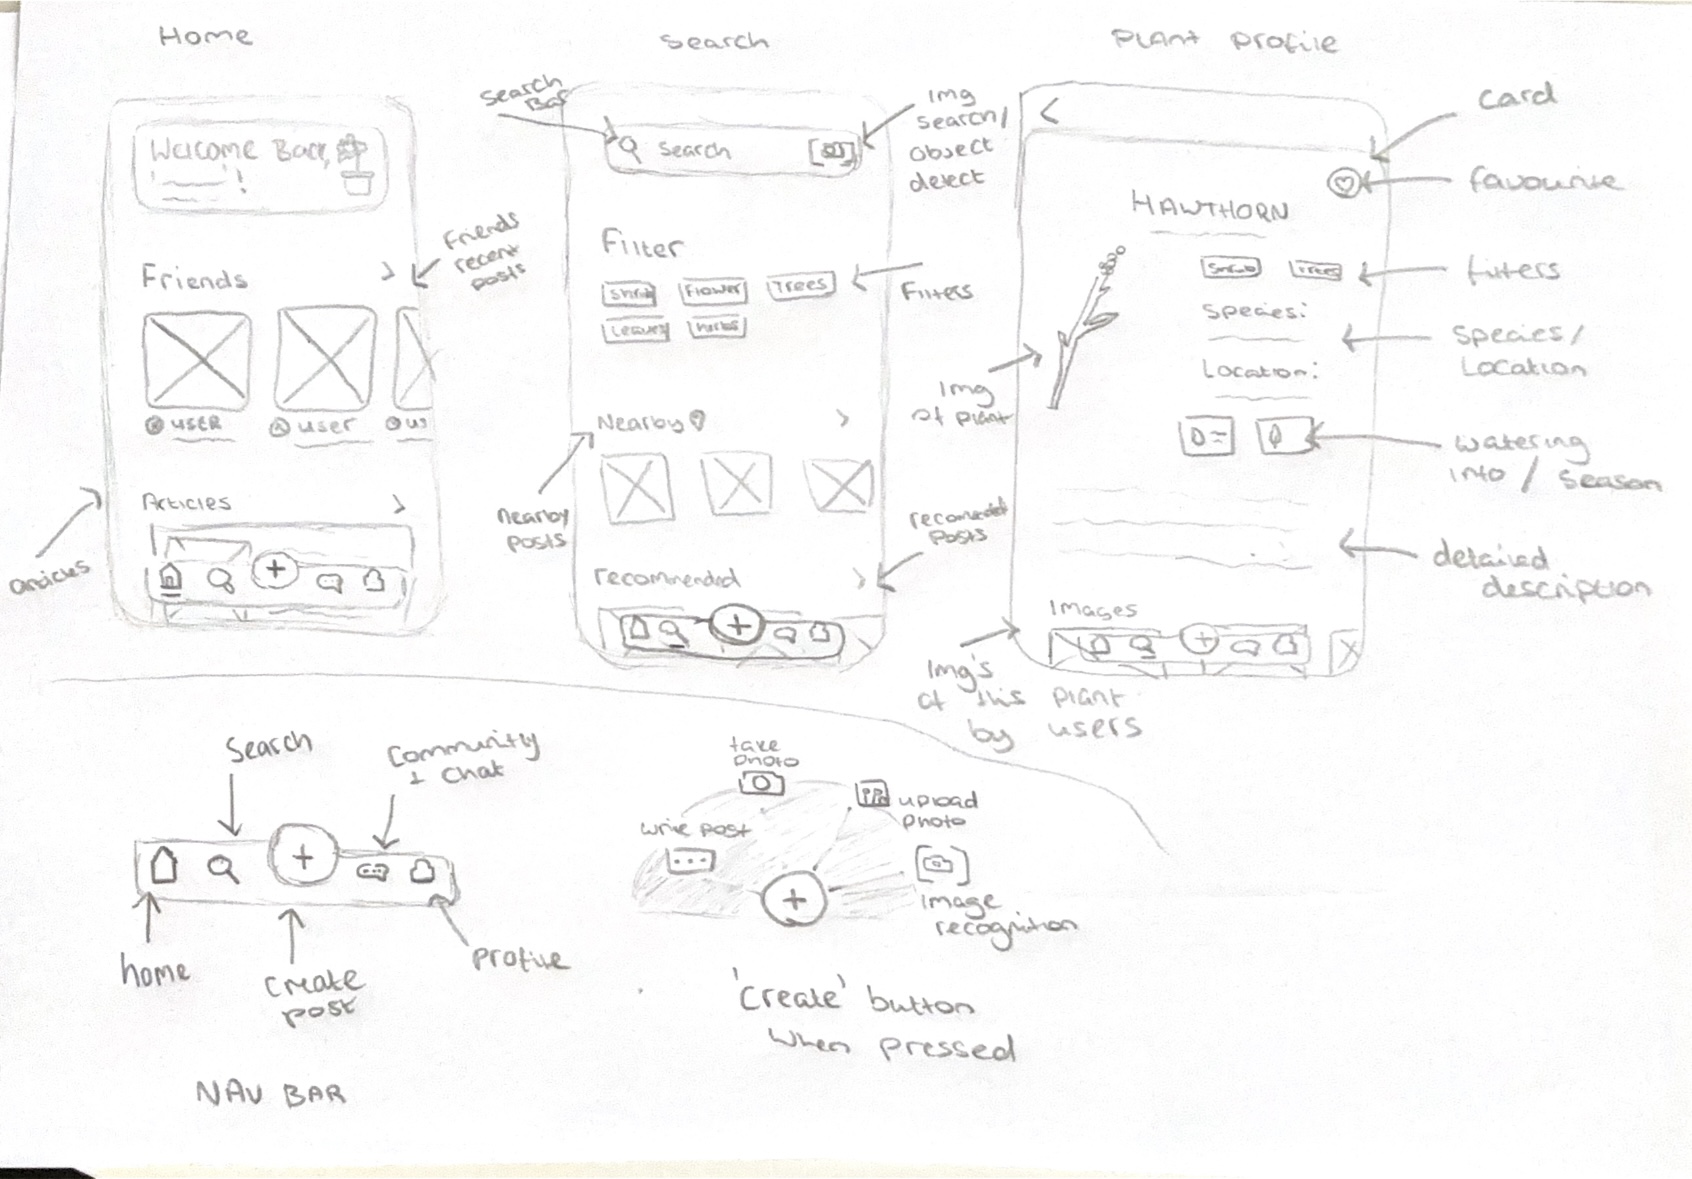 Home
Welcome Back,
!
Friends
user
user
us
Articles
Friends
recent
posts
articles
Search
Search
Bar
Search
Img
search/
object
detect
Filter
Shrub
Flower
Trees
Leaves
Herbs
Filters
Nearby
nearby
posts
recommended
posts
recommended
Plant Profile
card
favourite
HAWTHORN
Shrub
Trees
filters
Species:
Location:
Species/
Location
Img
of plant
watering
info / season
detailed
description
Images
Img's
of this plant
by users
Search
Community
+ chat
home
create
post
profile
NAV BAR
take
photo
upload
photo
write post
image
recognition
'create' button
when pressed